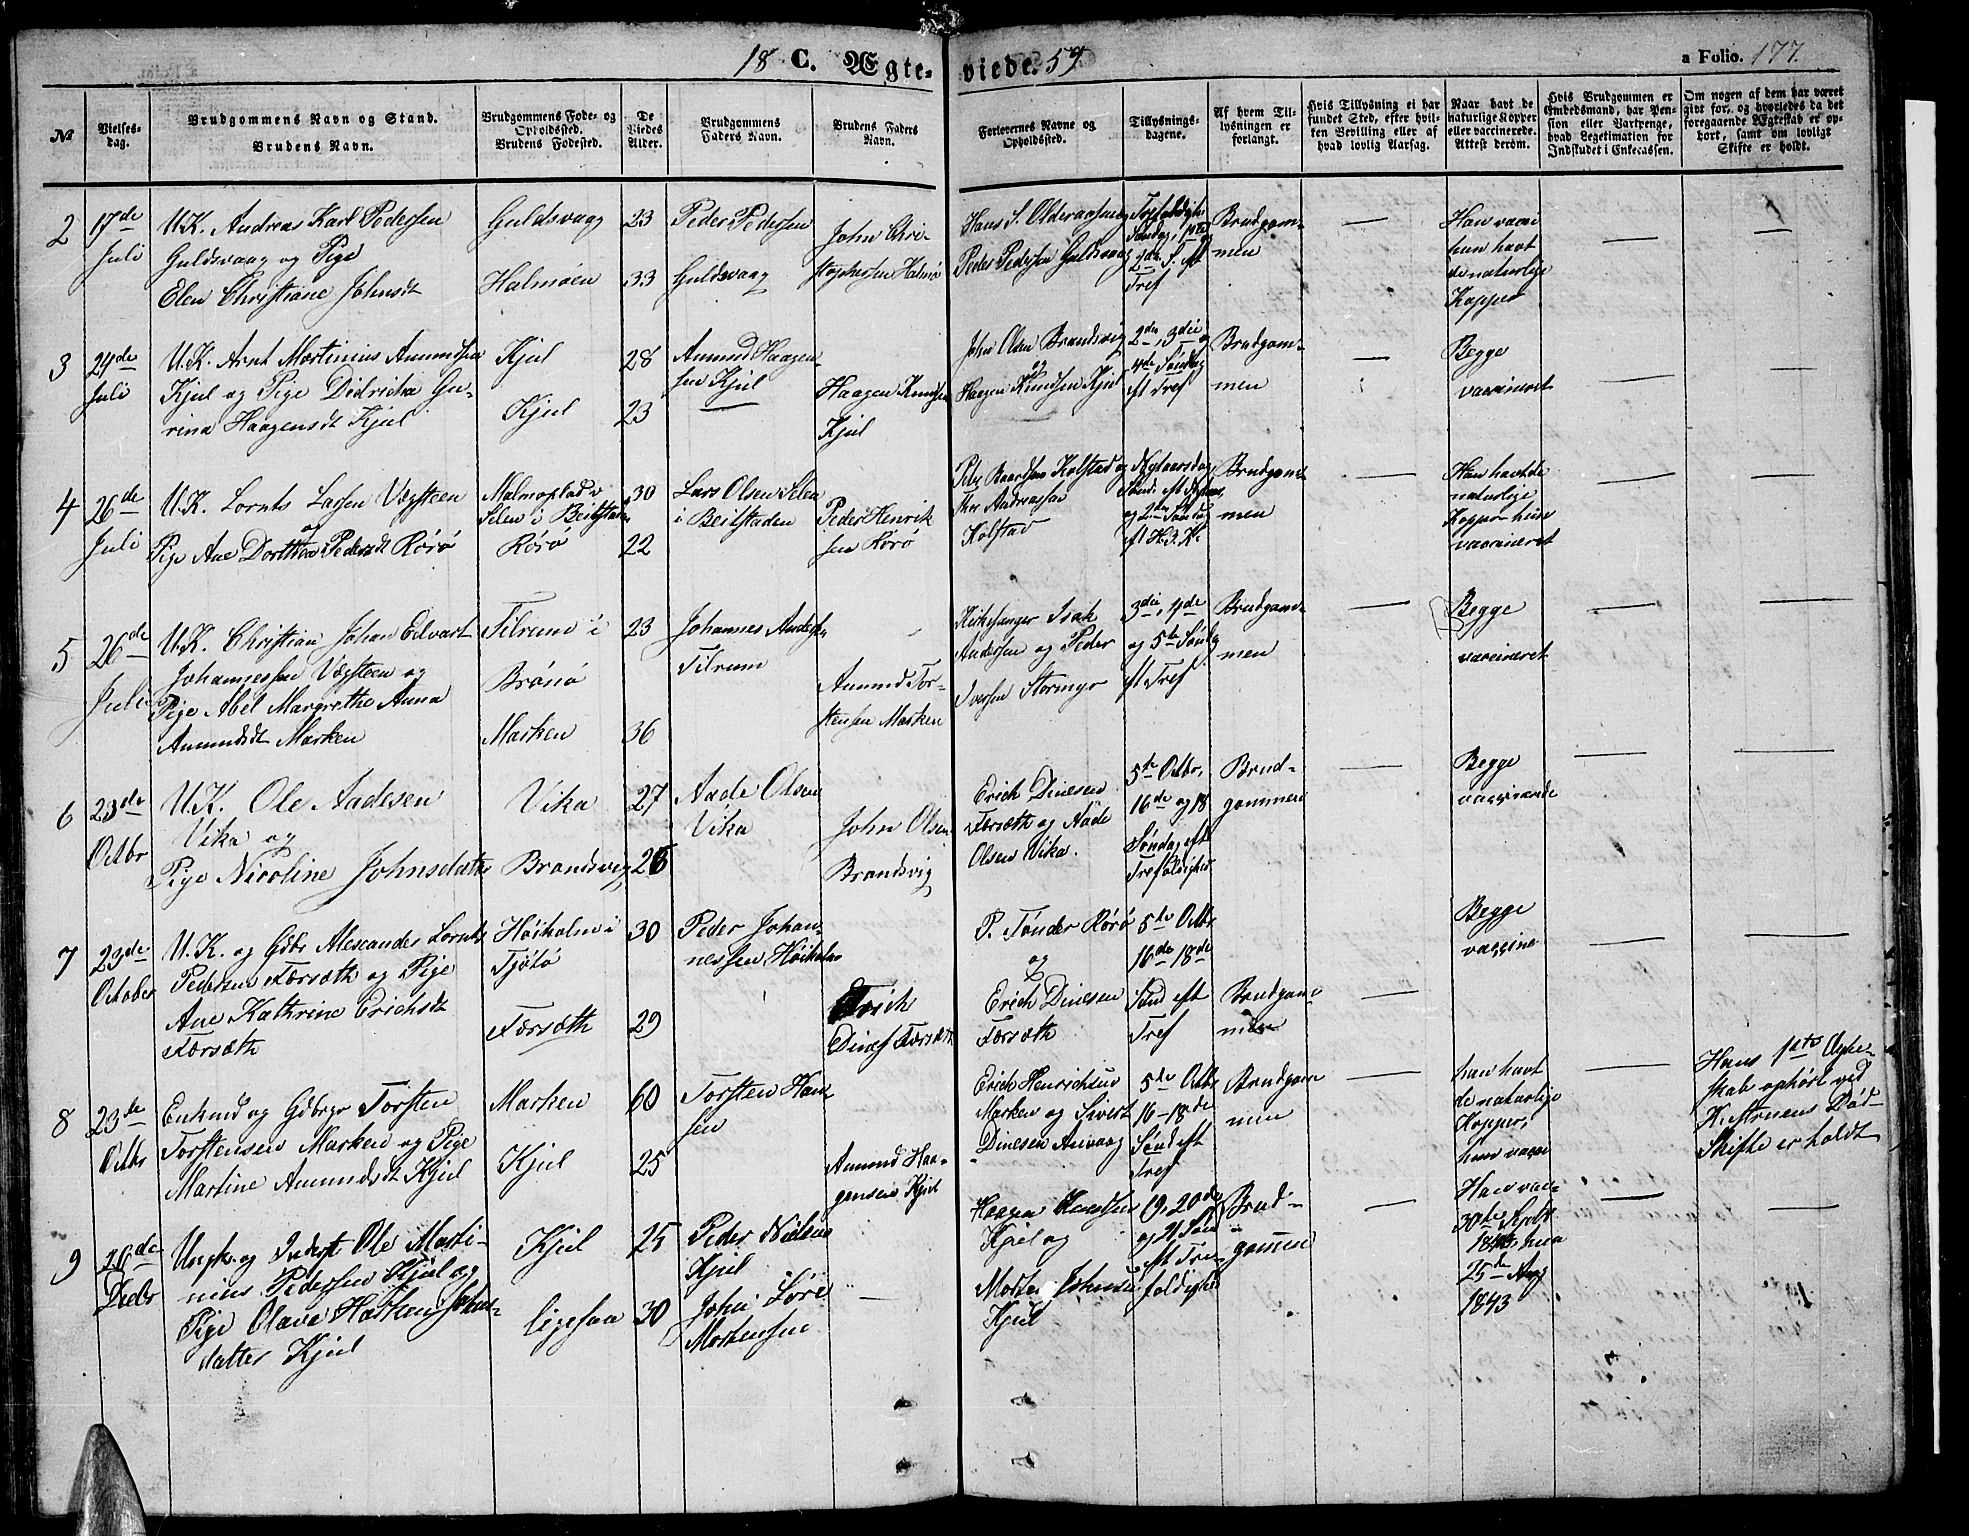 18 C. Ægteviede. 59
a Folio. 177.
No
Vielsesdag.
Brudgommens Navn og Stand.
Brudens Navn.
Brudgommens Føde- og Opholdssted.
Brudens Fødested.
De Viedes Alder.
Brudgommens Faders Navn.
Brudens Faders Navn.
Forlovernes Navne og Opholdssted.
Tillysningsdagene.
Af hvem Tillysningen er forlangt.
Hvis Tillysning ei har fundet Sted, efter hvilken Bevilling eller af hvad lovlig Aarsag.
Naar havt de naturlige Kopper eller vaccinerede. Attest derom.
Hvis Brudgommen er Embedsmand, har Pension eller Vartpenge, hvad Legetimation for Indskudet i Enkecassen.
Om nogen af dem har været givt før, og hvorledes da det foregaaende Ægteskab er ophørt, samt om lovligt Skifte er holdt.
2
17de
Juli
U.K. Andreas Karl Pedersen
Guldsvaag og Pige
Elen Christiane Johnsdt
Guldsvaag
Halmøen
23
33
Peder Pedersen
Guldsvaag
John Christophersen Halmø
Hans S. Olderaasen
Peder Pedersen Guldsvaag
Søndag, 1ste
2den S. eft
Tref
Brudgommen
Han vacc
hun havt
de naturlige
Kopper
3
24de
Juli
U.K. Arnt Martinius Amundsen
Kjul og Pige Didricha Gurina Haagensdt Kjul
Kjul
Kjul
28
23
Amund Haagensen Kjul
Haagen Knudsen
Kjul
John Olsen Brandsvig
og
Haagen Knudsen Kjul
2den, 3die og
4de Søndag
eft Tref
Brudgommen
Begge
vaccineret
4
26de
Juli
U.K. Lornts Larsen Vegsteen
og
Pige Ane Dorthea Pedersdt Rørø
Malmoplads
Selen i Beitstaden
Rørø
30
22
Lars Olsen Selen
i Beitstaden
Peder Henriksen Rørø
Peder Baardsen Kolstad og
Thor Andreassen
Kolstad
Nytaarsdag,
Sønd. eft Nytaar,
og 2den Søndag
eft H.3.K.
Brudgommen
Han havt de
naturlige
Kopper hun
vaccineret
5
26de
Juli
U.K. Christian Johan Edvart
Johannessen Vegsteen og
Pige Abel Margrethe Anna
Amundsdt Marken
Tilrum i
Brønø
Marken
23
36
Johannes Andersen
Tilrum
Amund Torstensen Marken
Kirkesanger Isak
Andersen og Peder
Iversen Stormyr
3die, 4de
og 5te Søndag
eft Tref
Brudgommen
Begge
vaccineret
6
23de
Octbr
U.K. Ole Aadesen
Vika og
Pige Nicoline Johnsdatter
Vika
Brandsvig
27
26
Aade Olsen
Vika
John Olsen
Brandsvig
Erich Dinesen
Forsæth og Aade
Olsen Vika.
5te Octbr,
16de og 18
Søndag eft
Trefoldighed
Brudgommen
Begge
vaccinerede
7
23de
October
U.K. og Gdbr Alexander Lornts
Pedersen Forsæth og Pige
Ane Kathrine Erichsdt
Forsæth
Høiholm i
Tjøtø
Forsæth
30
29
Peder Johannessen Høiholm
Erich
Dines Forsæth
P. Tønder Rørø
og
Erich Dinesen
Forsæth
5te Octbr
16de 18de
Sønd eft
Tref
Brudgommen
Begge
vaccine
8
23de
Octbr
Enkmd og Gdbrgr Torsten
Torstensen Marken og Pige
Martine Amundsdt Kjul
Marken
Kjul
60
25
Torsten Hansen
Amund Haagensen Kjul
Erich Henrichsen
Marken og Sivert
Dinesen Anvaag
5te Octbr
16-18de
Sønd eft
Tref
Brudgommen
han havt
de naturlige
Kopper,
hun vaccin
Hans 1ste Ægteskab ophørt ved
K. Død
Skifte er holdt
9
29de
Decbr
Ungk. og Inderst Ole Martinius Pedersen Kjul og
Pige Olava Johnsdatter Kjul
Kjul
ligesaa
25
30
Peder Nielsen
Kjul
John
Mortensen
Haagen Knudsen
Kjul og
Morten Johnsen
Kjul
19, 20de
og 21 Sønd
eft Trefoldighed
Brudgommen
Han vacc
30te Septbr
hun
25de Aug
1843